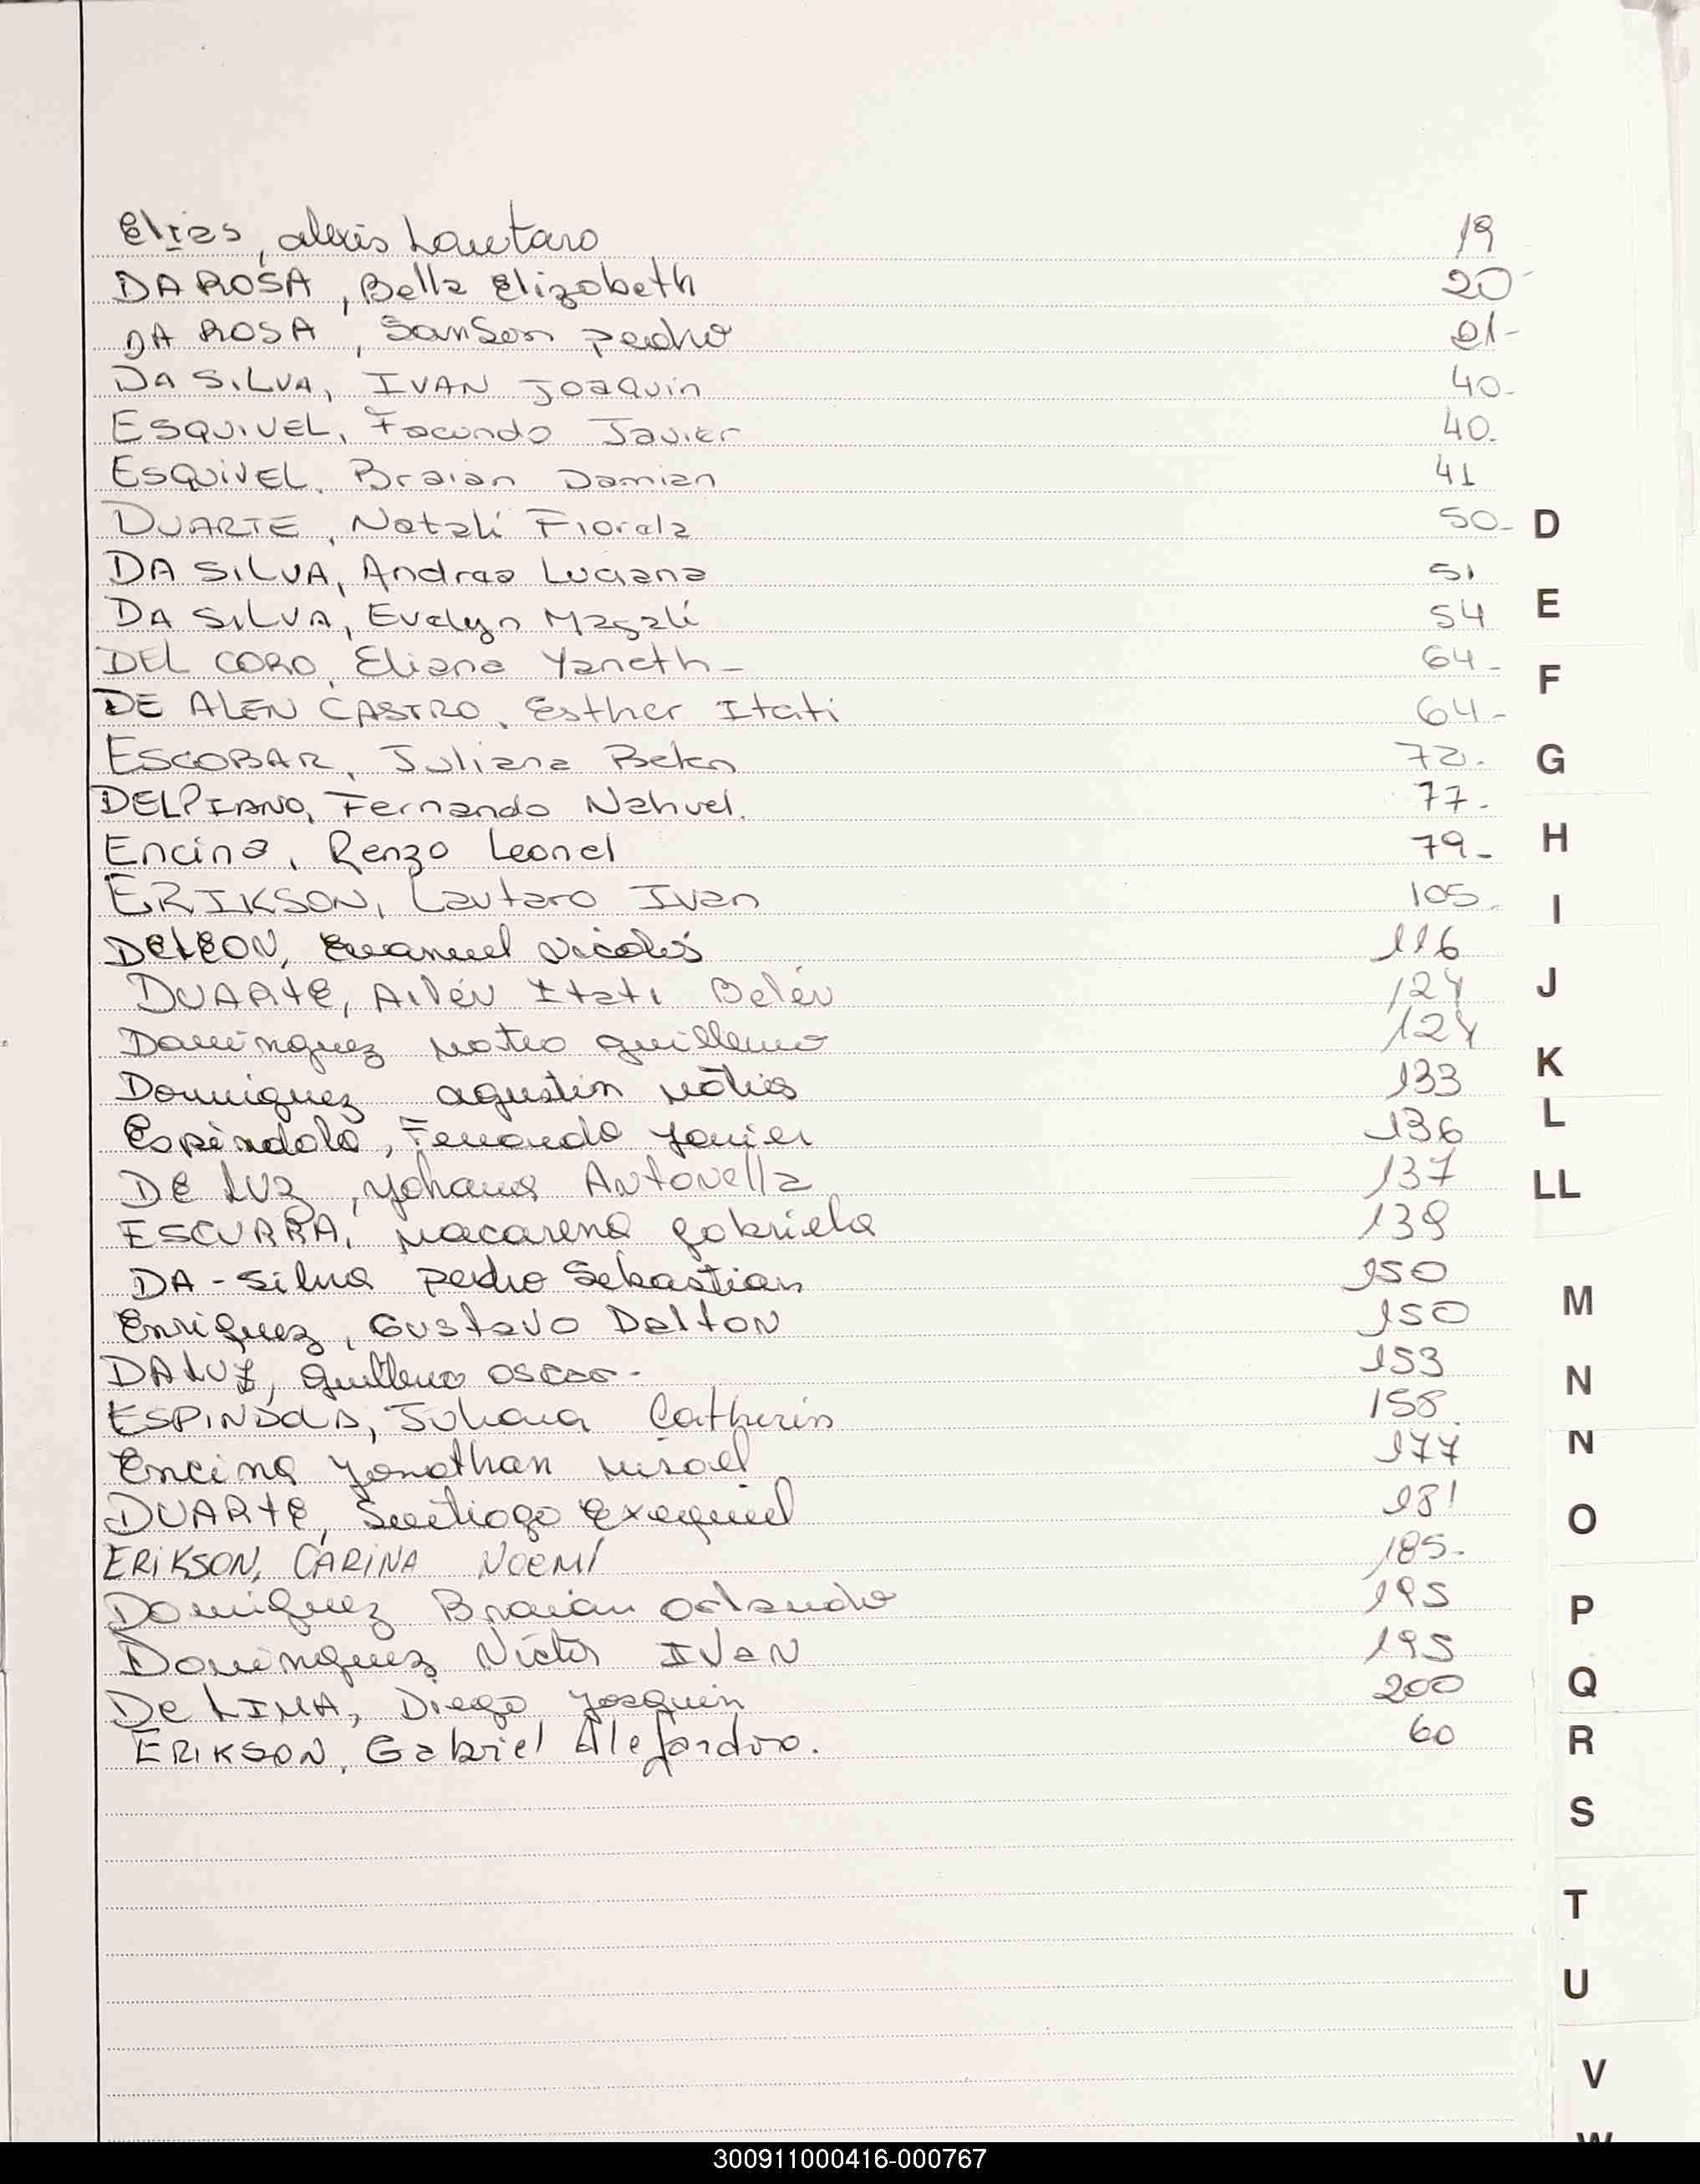 Elias, Alexis Lautaro 19
DA ROSA, Bella Elizabeth 20-
DA ROSA, Sanson Pedro 21-
DA SILVA, IVAN Joaquin 40-
ESQUIVEL, Facundo Javier 40-
ESQUIVEL, Braian Damian 41
DUARTE, Natali Fiorela 50-
DA SILVA, Andrea Luciana 51
DA SILVA, Evelyn Magali 54
DEL CORO, Eliana Yaneth- 64-
DE ALEN CASTRO, Esther Itati 64-
ESCOBAR, Juliana Belen 72.
DELPIANO, Fernando Nahuel. 77-
Encina, Renzo Leonel 79-
ERIKSON, Lautaro Ivan 105-
DELEON, Emanuel Nicolás 116
DUARTE, Ailén Itati Belén 124
Domínguez Mateo Guillermo 124
Domiguez Agustin Matias 133
Espíndola, Fernando Javier 136
DE LUZ, Yohana Antonella 137
ESCURRA, Macarena Gabriela 139
DA-Silva Pedro Sebastian 150
Enriquez, Gustavo Dalton 150
DALUZ, Guillermo Oscar- 153
ESPINDOLA, Juliana Catherin 158
Encina Yonathan Misael 177
DUARTE, Santiago Exequiel 181
ERIKSON, CARINA NOEMÍ 185-
Domiguez Braian Orlando 195
Domínguez Victor IVAN 195
De LIMA, Diego Joaquin 200
ERIKSON, Gabriel Alejandro. 60
D
E
F
G
H
I
J
K
L
LL
M
N
N
O
P
Q
R
S
T
U
V
W
300911000416-000767